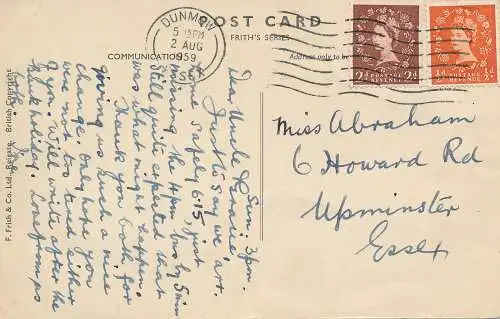 POST CARD
FRITH'S SERIES
COMMUNICATION
Address only to be
DUNMOW
5 15PM
2 AUG
1959
ESSEX
POSTAGE REVENUE
2d 2d
POSTAGE REVENUE
½d ½d
Sun. 3pm.
Dear Uncle &
Just to say we arr.
home safely 6.15 just
missing the 4pm bus by 5min
Still quite expected that
was what might happen.
Thank you both for
giving us such a nice
change, only hope you
were not too tired either
of you. Will write after the
Bank holiday. Love from us
both.
Miss Abraham
6 Howard Rd
Upminster
Essex
F. Frith & Co. Ltd., Reigate. British Copyright